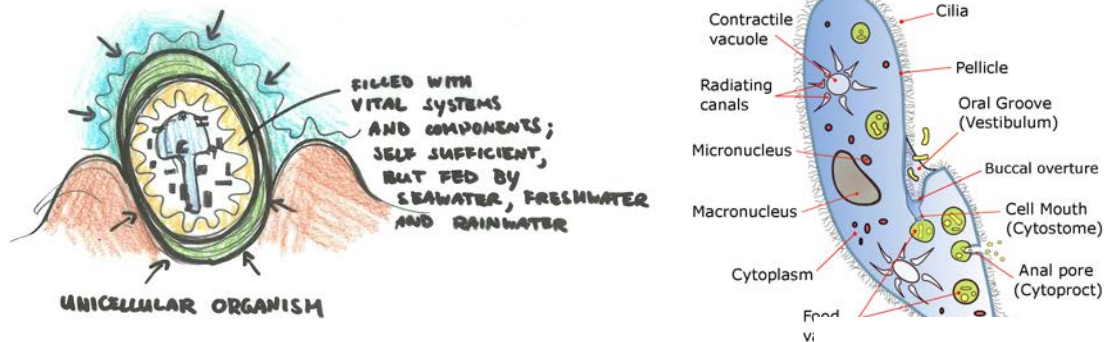 FILLED WITH
VITAL SYSTEMS
AND COMPONENTS;
SELF SUFFICIENT,
BUT FED BY
SEAWATER, FRESHWATER
AND RAINWATER
UNICELLULAR ORGANISM
Contractile
vacuole
Radiating
canals
Micronucleus
Macronucleus
Cytoplasm
Food
Cilia
Pellicle
Oral Groove
(Vestibulum)
Buccal overture
Cell Mouth
(Cytostome)
Anal pore
(Cytoproct)